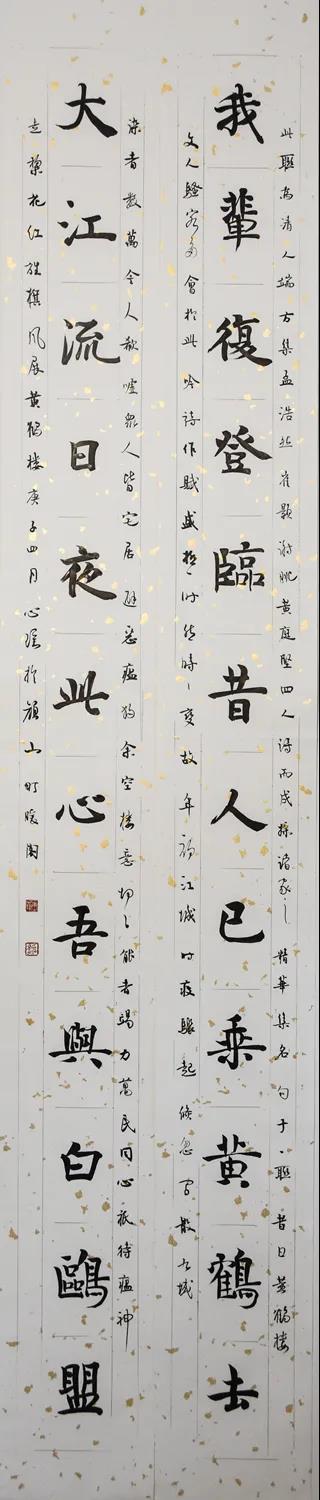 此聯為清人端方集孟浩然崔顥謝眺黃庭堅四人詩而成採諸家之精華集名句于一聯昔日黃鶴樓
我輩復登臨昔人已乘黃鶴去
文人騷客多會於此吟詩作賦盛極一时然時變故年初江城时疫驟起倏忽间散九域
染者數萬令人歔噓眾人皆宅居避惡瘟獨余空樓意切能者竭力萬民同心祇待瘟神
大江流日夜此心吾與白鷗盟
去黎花红旌旗风展黃鶴樓庚子四月心於山町暖閣